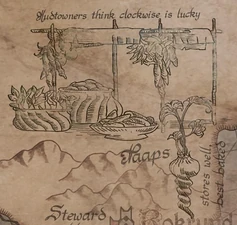 Mudtowners think clockwise is lucky
Naaps
stores well,
best baked
Steward